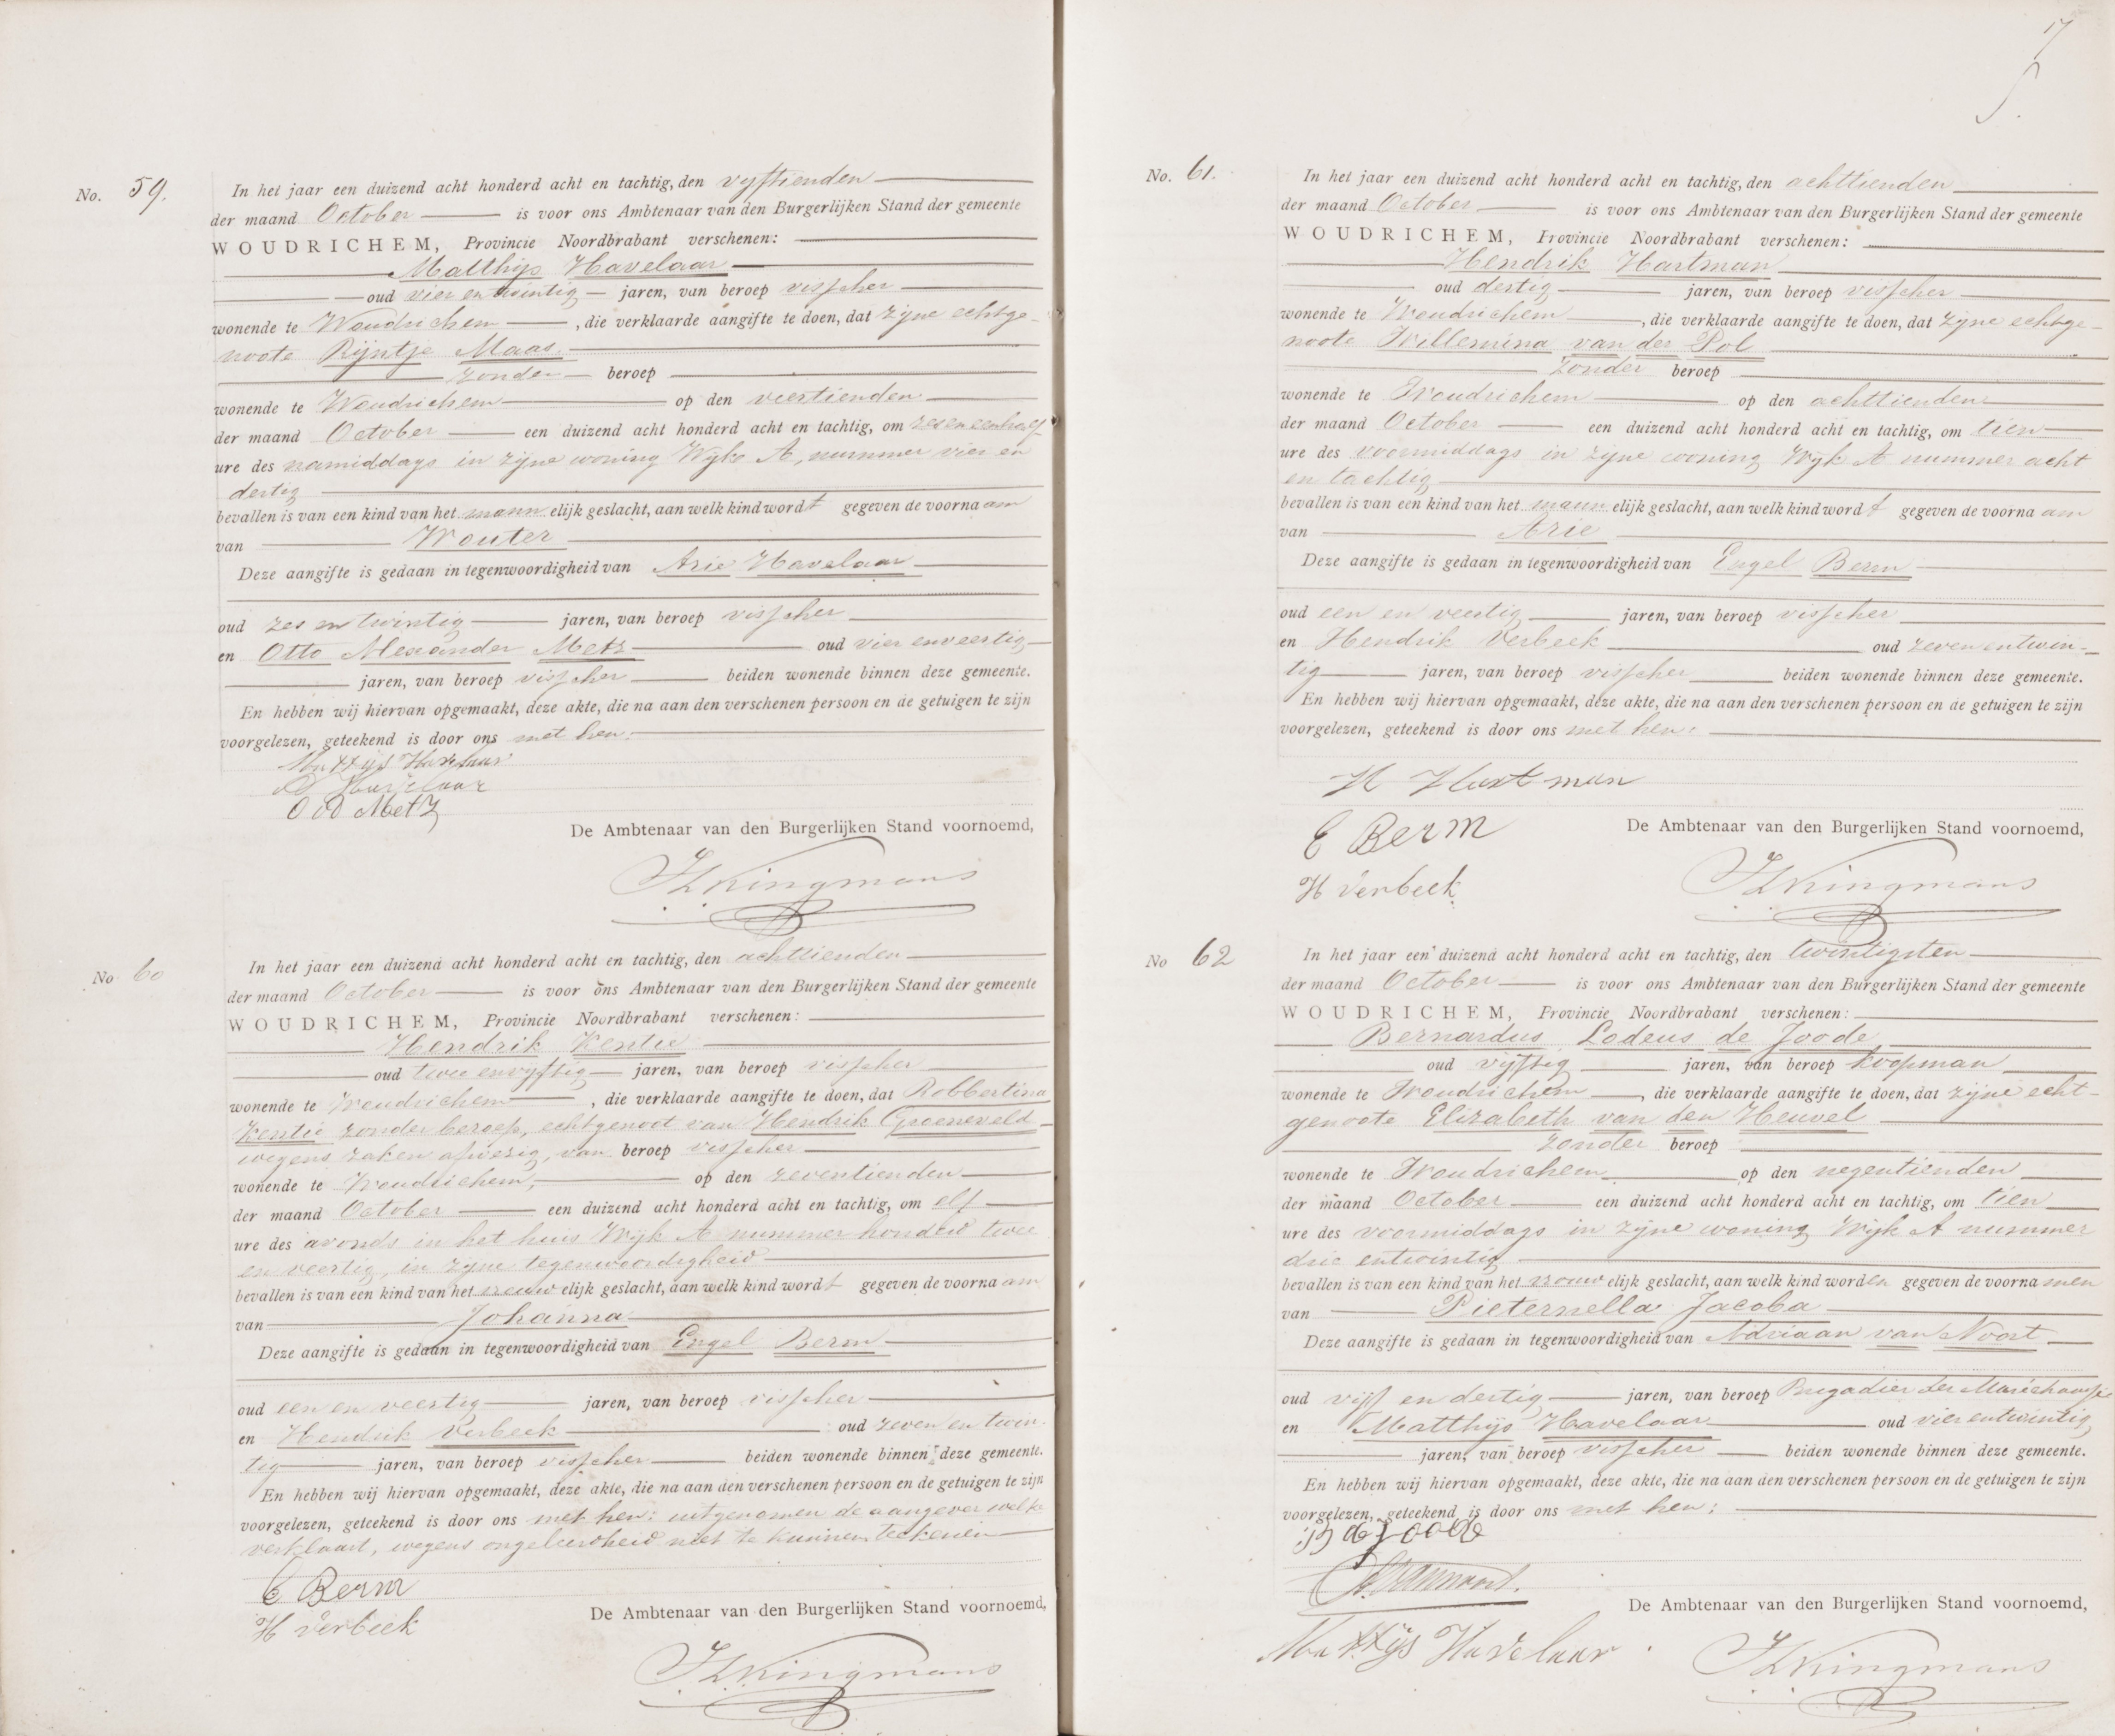 No. 59.
In het jaar een duizend acht honderd acht en tachtig, den vyftienden
der maand October is voor ons Ambtenaar van den Burgerlijken Stand der gemeente
WOUDRICHEM, Provincie Noordbrabant verschenen:
Matthijs Havelaar
oud vier en twintig jaren, van beroep visscher
wonende te Woudrichem, die verklaarde aangifte te doen, dat zijne echtge-
noote Rijntje Maas
zonder beroep
wonende te Woudrichem op den veertienden
der maand October een duizend acht honderd acht en tachtig, om zes en een half
ure des namiddags in zijne woning Wijk A, nummer vier en
dertig
bevallen is van een kind van het mannelijk geslacht, aan welk kind wordt gegeven de voornaam
van Wouter
Deze aangifte is gedaan in tegenwoordigheid van Arie Havelaar
oud zes en twintig jaren, van beroep visscher
en Otto Alexander Metz oud vier en veertig
jaren, van beroep visscher beiden wonende binnen deze gemeente.
En hebben wij hiervan opgemaakt, deze akte, die na aan den verschenen persoon en de getuigen te zijn
voorgelezen, geteekend is door ons met hen:
Mattijs Havelaar
A Havelaar
O A Metz
De Ambtenaar van den Burgerlijken Stand voornoemd,
Kingmans
No 60
In het jaar een duizend acht honderd acht en tachtig, den achttienden
der maand October is voor ons Ambtenaar van den Burgerlijken Stand der gemeente
WOUDRICHEM, Provincie Noordbrabant verschenen:
Hendrik Kentie
oud twee en vyftig jaren, van beroep visscher
wonende te Woudrichem, die verklaarde aangifte te doen, dat Robbertina
Kentie zonder beroep, echtgenoot van Hendrik Groeneveld
wegens zaken afwezig, van beroep visscher
wonende te Woudrichem, op den zeventienden
der maand October een duizend acht honderd acht en tachtig, om elf
ure des avonds in het huis Wijk A nummer honderd twee
en veertig, in zijne tegenwoordigheid
bevallen is van een kind van het vrouwelijk geslacht, aan welk kind wordt gegeven de voornaam
van Johanna
Deze aangifte is gedaan in tegenwoordigheid van Engel Berm
oud een en veertig jaren, van beroep visscher
en Hendrik Verbeek oud zeven en twin-
tig jaren, van beroep visscher beiden wonende binnen deze gemeente.
En hebben wij hiervan opgemaakt, deze akte, die na aan den verschenen persoon en de getuigen te zijn
voorgelezen, geteekend is door ons met hen: uitgenomen de aangever welke
verklaart, wegens ongeleerdheid niet te kunnen teekenen
E Berm
H Verbeek
De Ambtenaar van den Burgerlijken Stand voornoemd,
Kingmans
17
No. 61.
In het jaar een duizend acht honderd acht en tachtig, den achttienden
der maand October is voor ons Ambtenaar van den Burgerlijken Stand der gemeente
WOUDRICHEM, Provincie Noordbrabant verschenen:
Hendrik Hartman
oud dertig jaren, van beroep visscher
wonende te Woudrichem, die verklaarde aangifte te doen, dat zijne echtge-
noote Willemina van der Pol
zonder beroep
wonende te Woudrichem op den achttienden
der maand October een duizend acht honderd acht en tachtig, om tien
ure des voormiddags in zijne woning Wijk A nummer acht
en tachtig
bevallen is van een kind van het mannelijk geslacht, aan welk kind wordt gegeven de voornaam
van Arie
Deze aangifte is gedaan in tegenwoordigheid van Engel Berm
oud een en veertig jaren, van beroep visscher
en Hendrik Verbeek oud zeven en twin-
tig jaren, van beroep visscher beiden wonende binnen deze gemeente.
En hebben wij hiervan opgemaakt, deze akte, die na aan den verschenen persoon en de getuigen te zijn
voorgelezen, geteekend is door ons met hen:
H Hartman
E Berm
H Verbeek
De Ambtenaar van den Burgerlijken Stand voornoemd,
Kingmans
No 62
In het jaar een duizend acht honderd acht en tachtig, den twintigsten
der maand October is voor ons Ambtenaar van den Burgerlijken Stand der gemeente
WOUDRICHEM, Provincie Noordbrabant verschenen:
Bernardus Lodeus de Joode
oud vijftig jaren, van beroep koopman
wonende te Woudrichem, die verklaarde aangifte te doen, dat zijne echt-
genoote Elizabeth van den Heuvel
zonder beroep
wonende te Woudrichem op den negentienden
der maand October een duizend acht honderd acht en tachtig, om tien
ure des voormiddags in zijne woning Wijk A nummer
drie en twintig
bevallen is van een kind van het vrouwelijk geslacht, aan welk kind worden gegeven de voornamen
van Pieternella Jacoba
Deze aangifte is gedaan in tegenwoordigheid van Adriaan van Noort
oud vijf en dertig jaren, van beroep Brigadier der Maréchaussée
en Matthijs Havelaar oud vier en twintig
jaren, van beroep visscher beiden wonende binnen deze gemeente.
En hebben wij hiervan opgemaakt, deze akte, die na aan den verschenen persoon en de getuigen te zijn
voorgelezen, geteekend is door ons met hen:
B de Joode
Mattijs Havelaar
De Ambtenaar van den Burgerlijken Stand voornoemd,
Kingmans